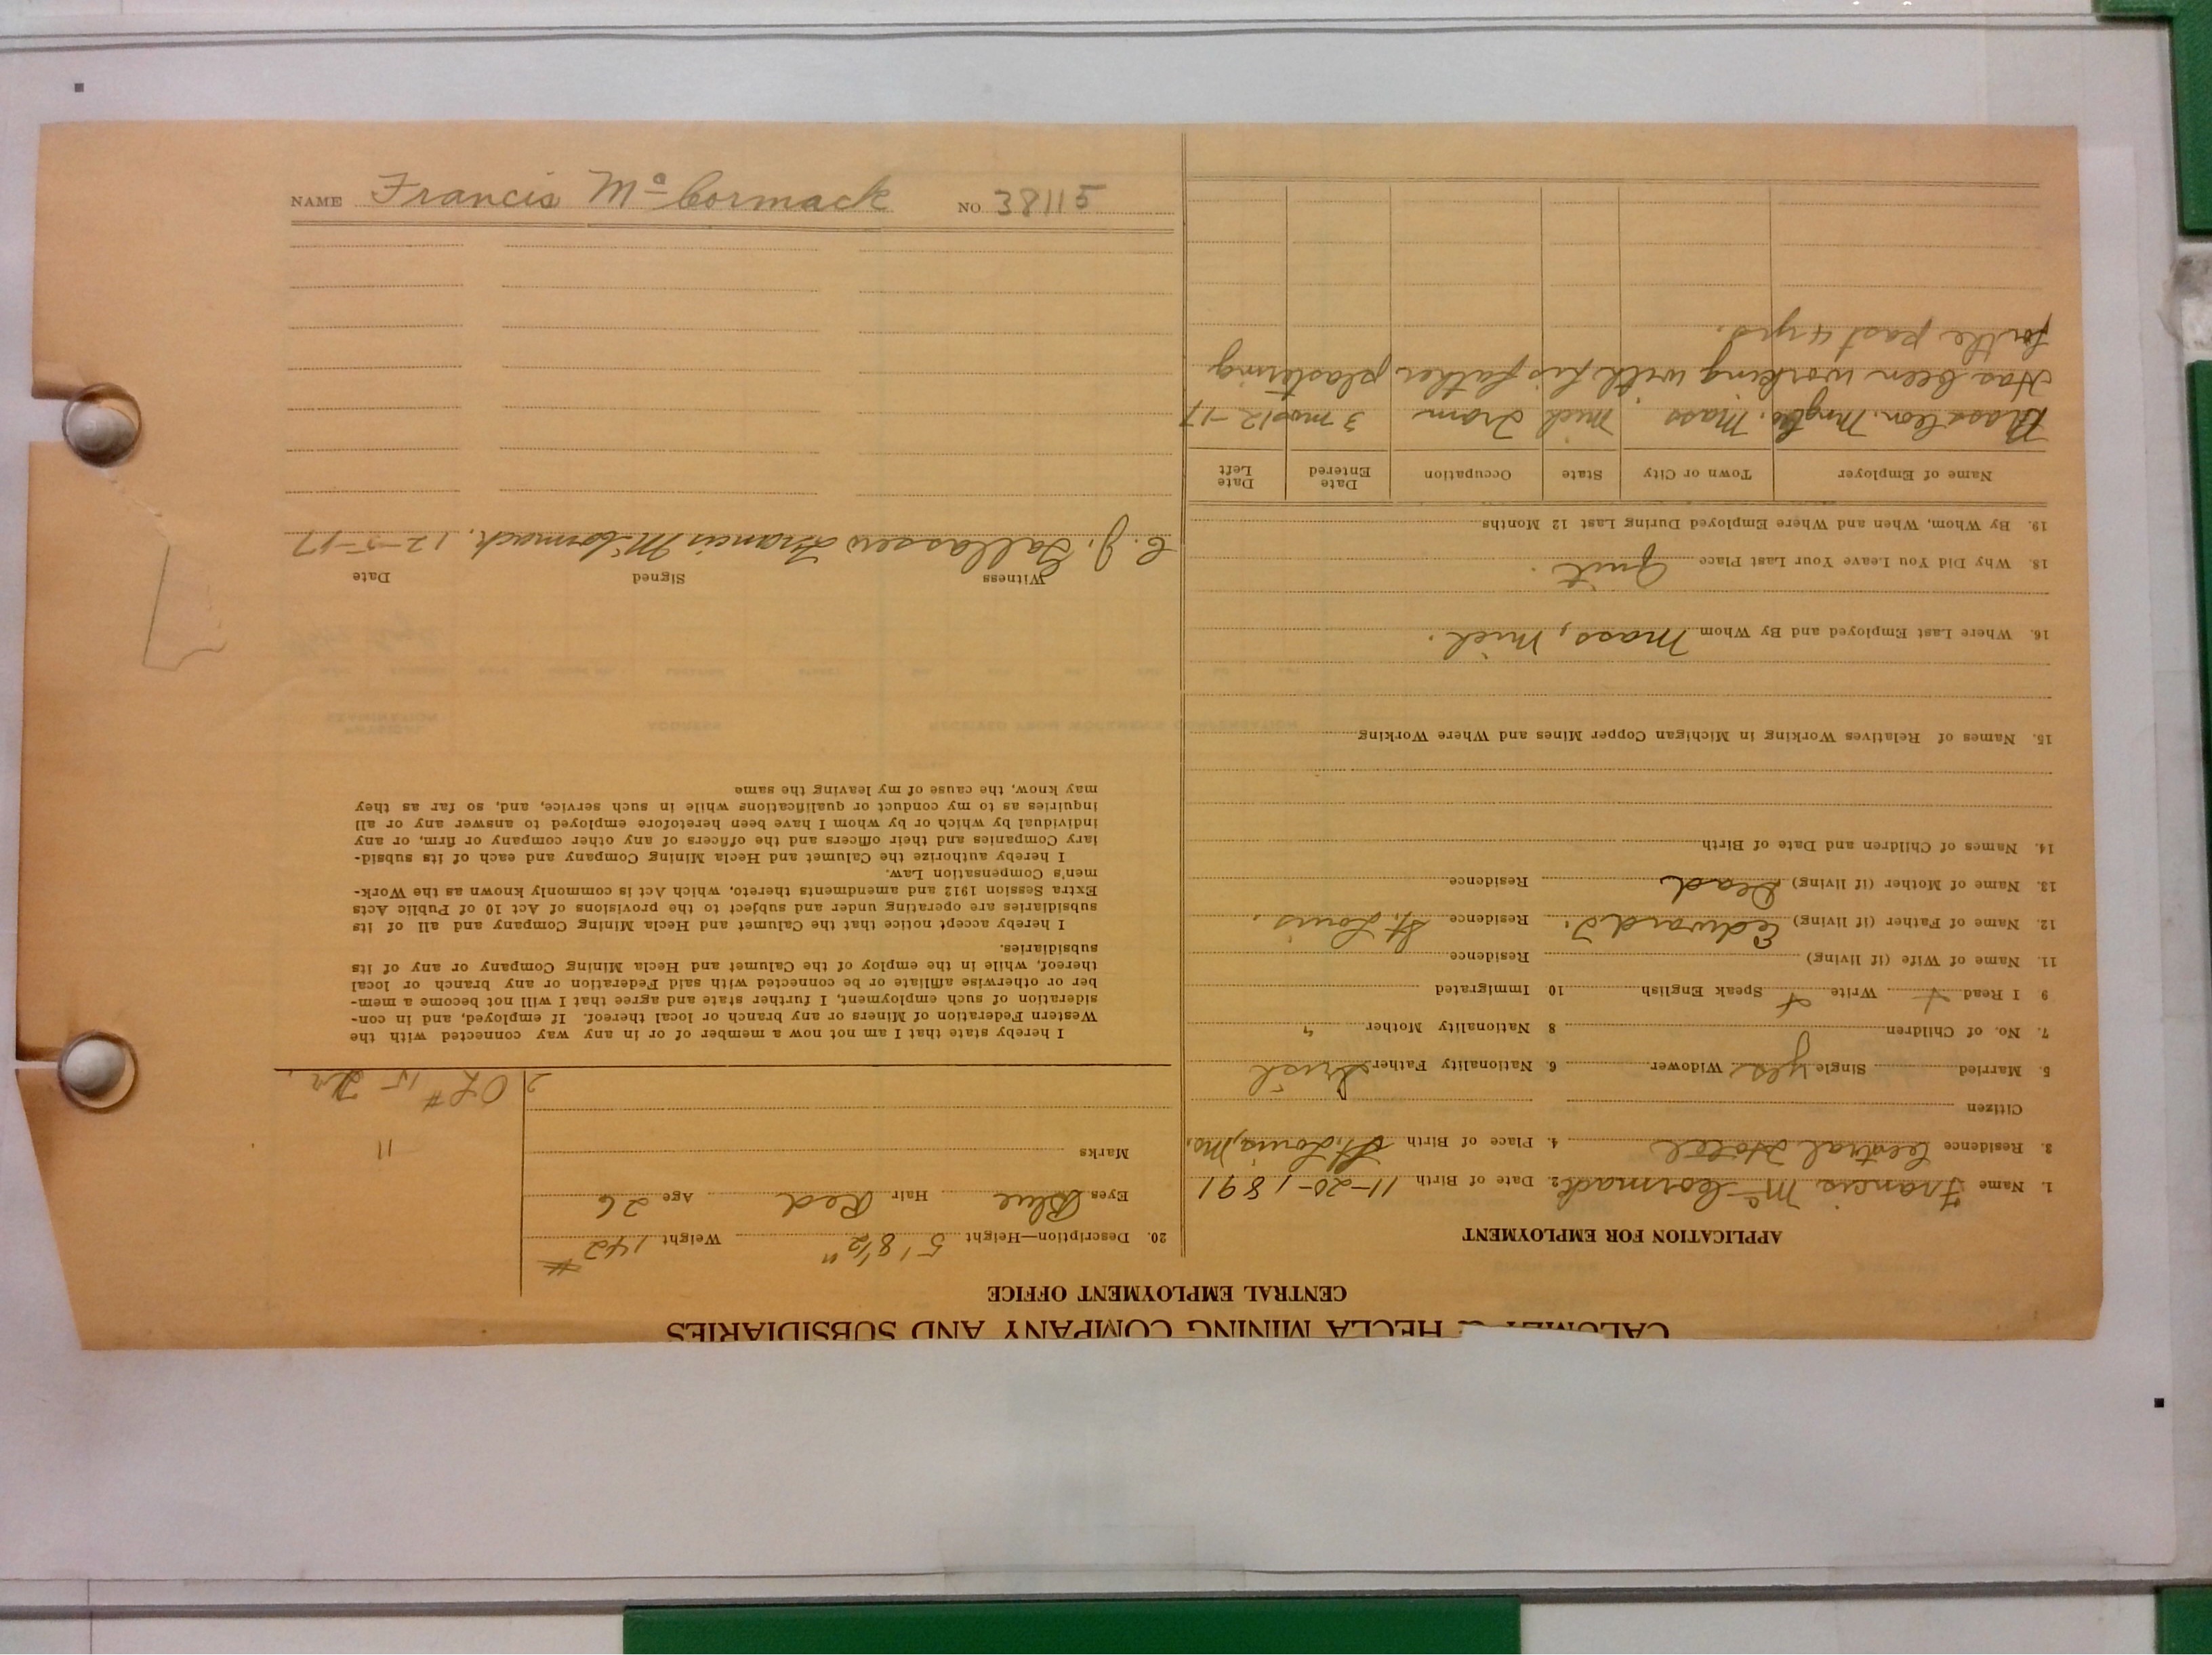 CALUMET & HECLA MINING COMPANY AND SUBSIDIARIES
CENTRAL EMPLOYMENT OFFICE
APPLICATION FOR EMPLOYMENT
1. Name Francis McCormack 2. Date of Birth 11-20-1891
3. Residence Central Hotel 4. Place of Birth St. Louis, Mo.
Citizen
5. Married Single yes Widower 6. Nationality Father Irish
7. No. of Children 8 Nationality Mother "
9 I Read + Write + Speak English 10 Immigrated
11. Name of Wife (if living) Residence
12. Name of Father (if living) Edward J. Residence St. Louis.
13. Name of Mother (if living) Dead Residence
14. Names of Children and Date of Birth
15. Names of Relatives Working in Michigan Copper Mines and Where Working
16. Where Last Employed and By Whom Mass, Mich.
18. Why Did You Leave Your Last Place Quit.
19. By Whom, When and Where Employed During Last 12 Months
Name of Employer Town or City State Occupation Date Entered Date Left
Mass Con. Mng Co. Mass Mich Tram 3 mos 12-17
Has been working with his father plastering
for the past 4 yrs.
20. Description—Height 5' 8½" Weight 142#
Eyes Blue Hair Red Age 26
Marks
11
2 OL # 15
I hereby state that I am not now a member of or in any way connected with the
Western Federation of Miners or any branch or local thereof. If employed, and in con-
sideration of such employment, I further state and agree that I will not become a mem-
ber or otherwise affiliate or be connected with said Federation or any branch or local
thereof, while in the employ of the Calumet and Hecla Mining Company or any of its
subsidiaries.
I hereby accept notice that the Calumet and Hecla Mining Company and all of its
subsidiaries are operating under and subject to the provisions of Act 10 of Public Acts
Extra Session 1912 and amendments thereto, which Act is commonly known as the Work-
men's Compensation Law.
I hereby authorize the Calumet and Hecla Mining Company and each of its subsid-
iary Companies and their officers and the officers of any other company or firm, or any
individual by which or by whom I have been heretofore employed to answer any or all
inquiries as to my conduct or qualifications while in such service, and, so far as they
may know, the cause of my leaving the same
Witness Signed Date
C. J. Francis McCormack. 12-5-17
NAME Francis McCormack NO. 38115